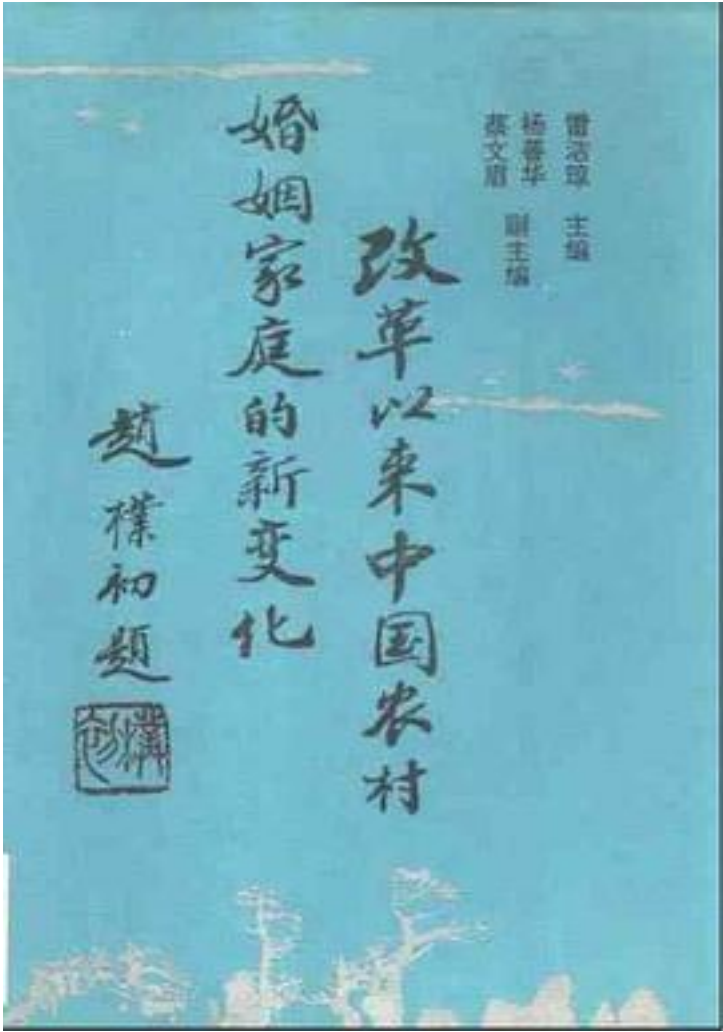 雷洁琼 主编
杨善华
蔡文眉 副主编
改革以来中国农村
婚姻家庭的新变化
趙樸初題
樸初